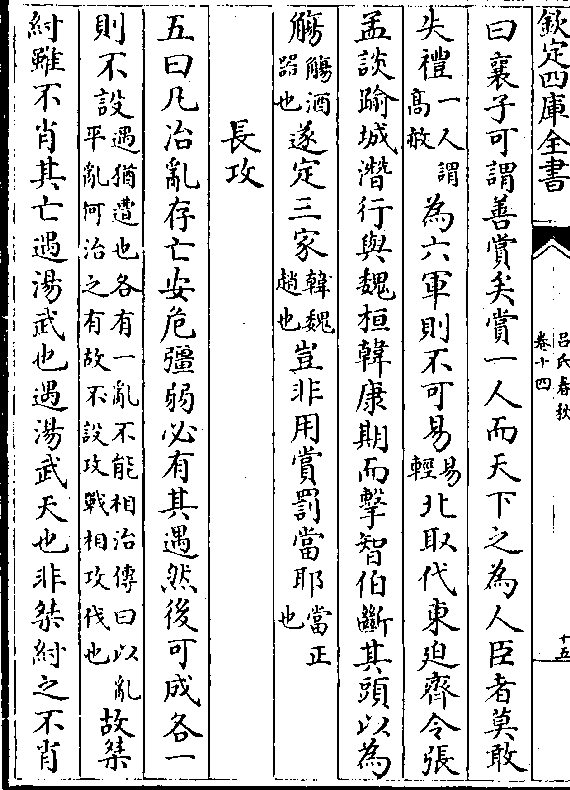 欽定四庫全書
呂氏春秋
卷十四
十五
曰襄子可謂善賞矣賞一人而天下之為人臣者莫敢
失禮一人謂高赦為六軍則不可易易輕北取代東廹齊令張
孟談踰城潛行與魏桓韓康期而擊智伯斷其頭以為
觴觴酒器也遂定三家韓魏趙也豈非用賞罰當耶當正也
長攻
五曰凡治亂存亡安危彊弱必有其遇然後可成各一
則不設遇猶遭也各有一亂不能相治傳曰以亂平亂何治之有故不設攻戰相攻伐也故桀
紂雖不肖其亡遇湯武也遇湯武天也非桀紂之不肖